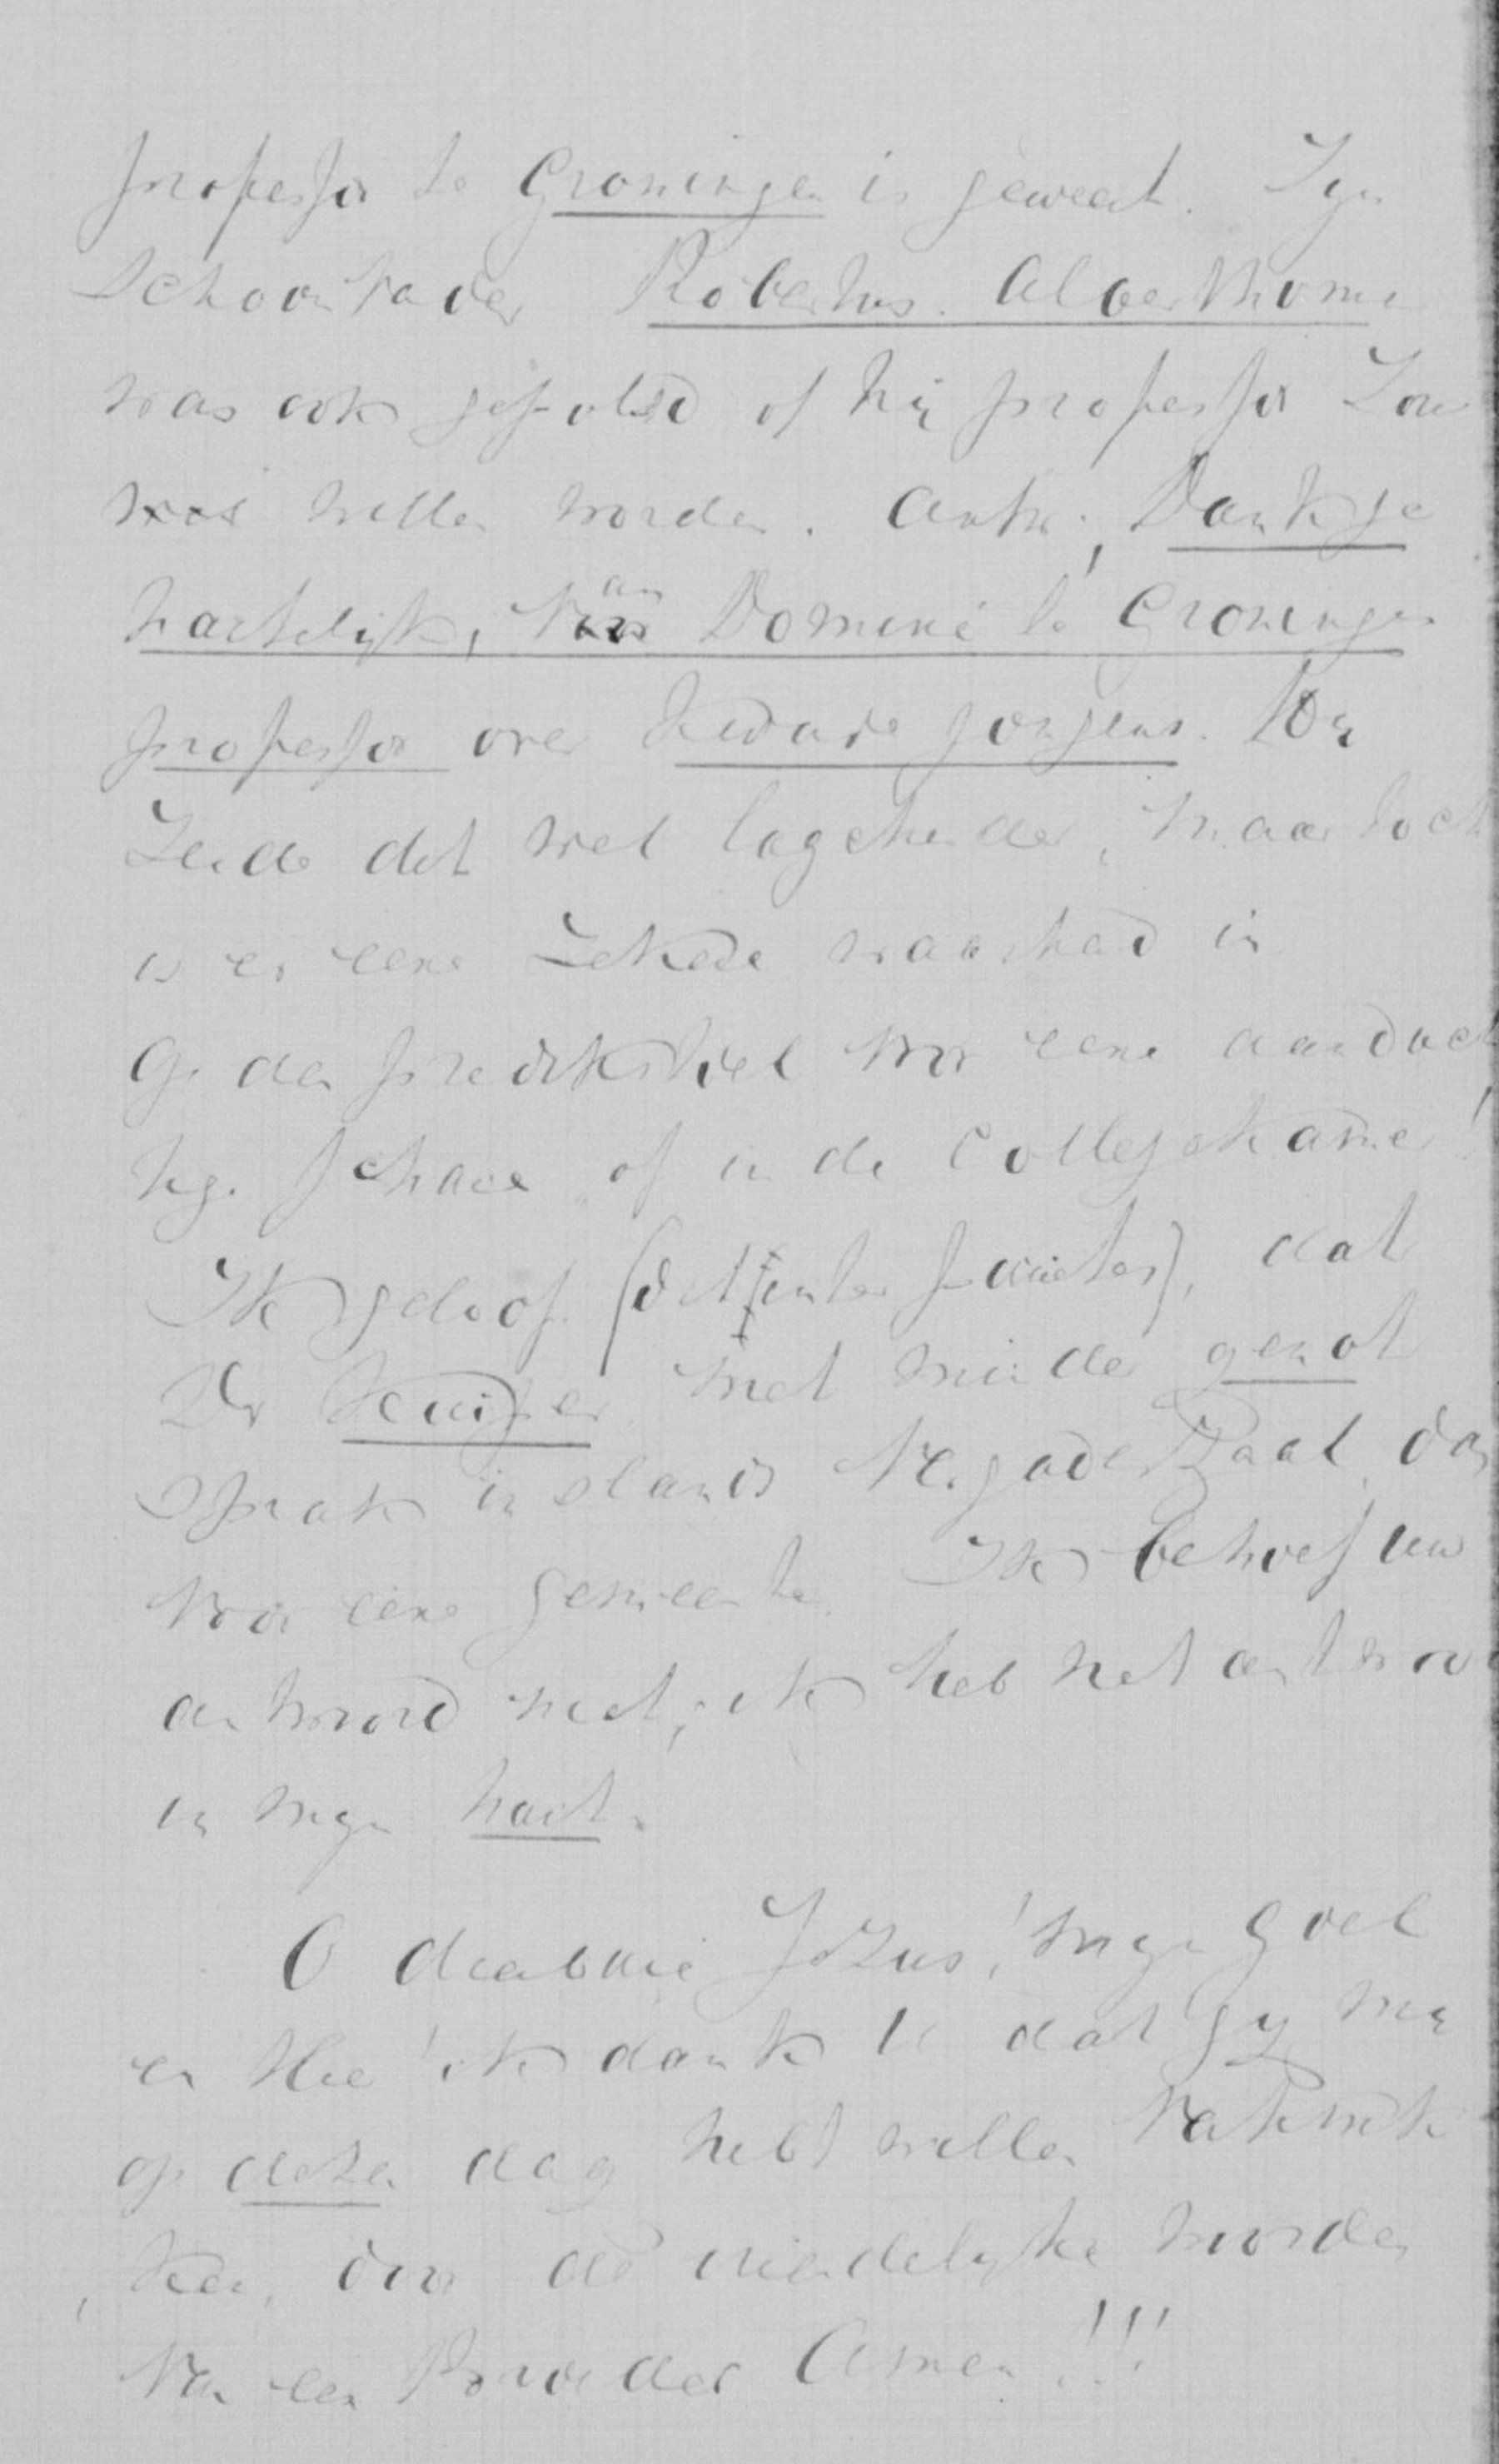 professor te Groningen is geweest. Zyn
Schoonvader Robertus Alberthoma
was ook gepolsd of hij professor zou
willen worden. Antw; Dank je
hartelijk, van Dominé te Groningen
professor over kwade jongens. Hij
Zeide dit wel lagchende, maar toch
is er eene Zekere waarheid in
Op den predikstoel voor eene aandach
tige schare of in de Collegekamer!
Ik geloof (dit inter ), dat
Dr Kuijper met minder genot
Sprak in slands Vergaderzaal dan
voor eene gemeente. Ik behoef uw
antwoord niet, ik heb het antwoo
in myn hart.
O dierbare Jezus! myn God
en Heer! ik dank U dat gy my
op dezen dag hebt willen
ken, door de vriendelyke woorden
Van een Broeder Amen!!!